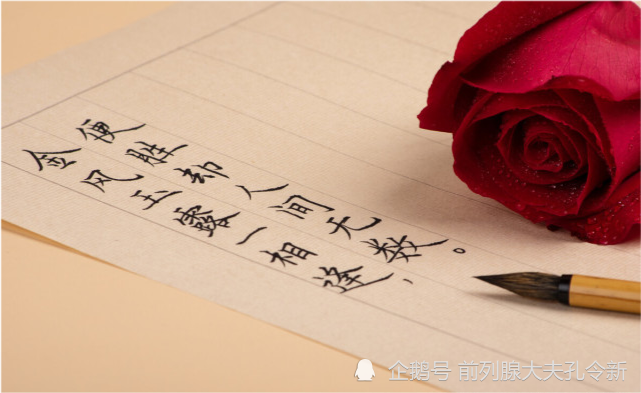 金风玉露一相逢、
便胜却人间无数。
企鹅号 前列腺大夫孔令新